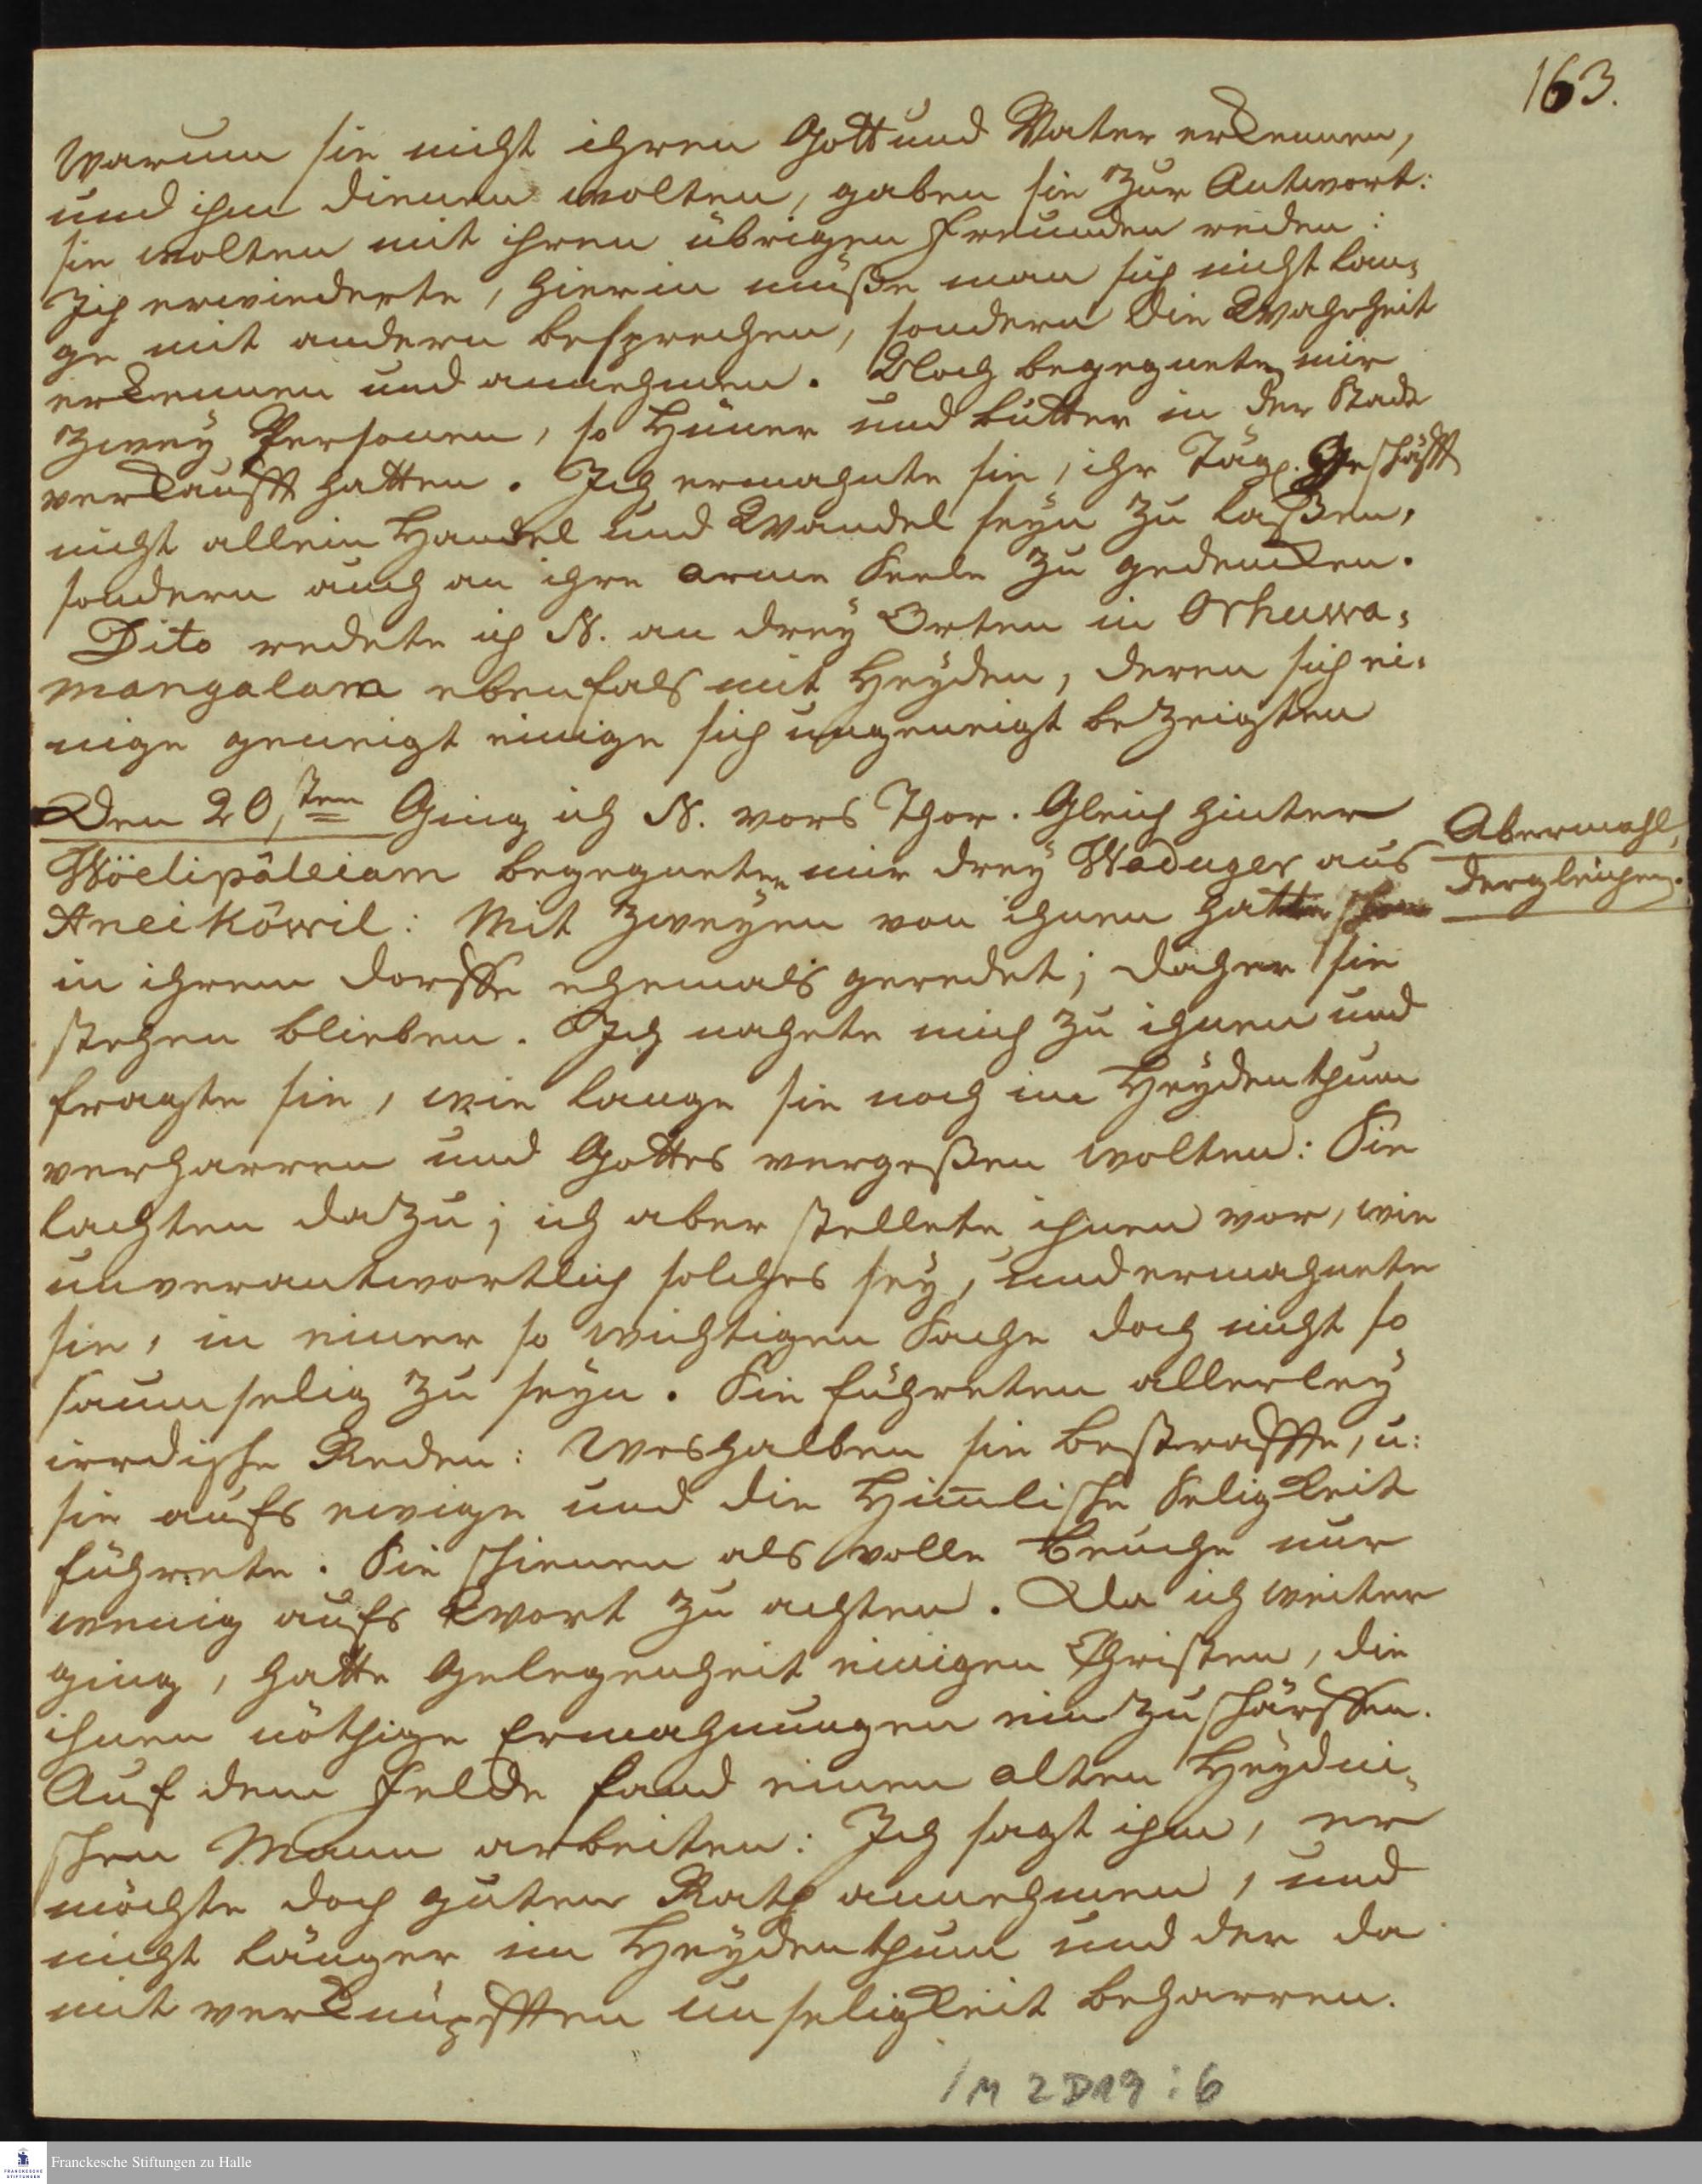 163.
Warum sie nicht ihren Gott und Vater erkennen,
und ihm dienen wolten, gaben sie zur Antwort:
sie wolten mit ihren übrigen Freunden reden:
Ich erwiederte, hierin müße man sich nicht lan-
ge mit andern besprechen, sondern die Wahrheit
erkennen und annehmen. Noch begegneten mir
zwey Personen, so Hüner und butter in der Stadt
verkaufft hatten. Ich ermahnte sie, ihr Tägl. Geschäfft
nicht allein Handel und Wandel seyn zu laßen,
sondern auch an ihre arme Seele zu gedencken.
Dito redete ich N. an drey Orten in Orhuwa-
mangalam ebenfals mit Heyden, deren sich ei-
nige geneigt einige sich ungeneigt bezeigten
Den 20,sten Ging ich N. vors Thor. Gleich hinter
Wöelipäleiam begegneten mir drey Waduger aus
Aneiköwil: Mit zweyen von ihnen hatte schon
in ihrem dorffe ehemals geredet; daher sie
stehen blieben. Ich nahete mich zu ihnen und
fragte sie, wie lange sie noch im Heydenthum
verharren und Gottes vergeßen wolten: Sie
lachten dazu; ich aber stellete ihnen vor, wie
unverantwortlich solches sey, und ermahnete
sie, in einer so wichtigen Sache doch nicht so
saumselig zu seyn. Sie führeten allerley
irrdische Reden: Weshalben sie bestraffte, u:
sie aufs ewige und die Him̅lische Seligkeit
führete. Sie schienen als volle Bäuche nur
wenig aufs Wort zu achten. Da ich weiter
ging, hatte Gelegenheit einigen Christen, die
ihnen nöthige Ermahnungen einzuschärffen.
Auf dem Felde fand einen alten Heydni-
schen Mann arbeiten: Ich sagt ihm, er
möchte doch guten Rath annehmen, und
nicht länger im Heydenthum und der da
mit verknüpfften unseligkeit beharren.
Abermahl,
dergleichen.
1M 2D19:6
Franckesche Stiftungen zu Halle